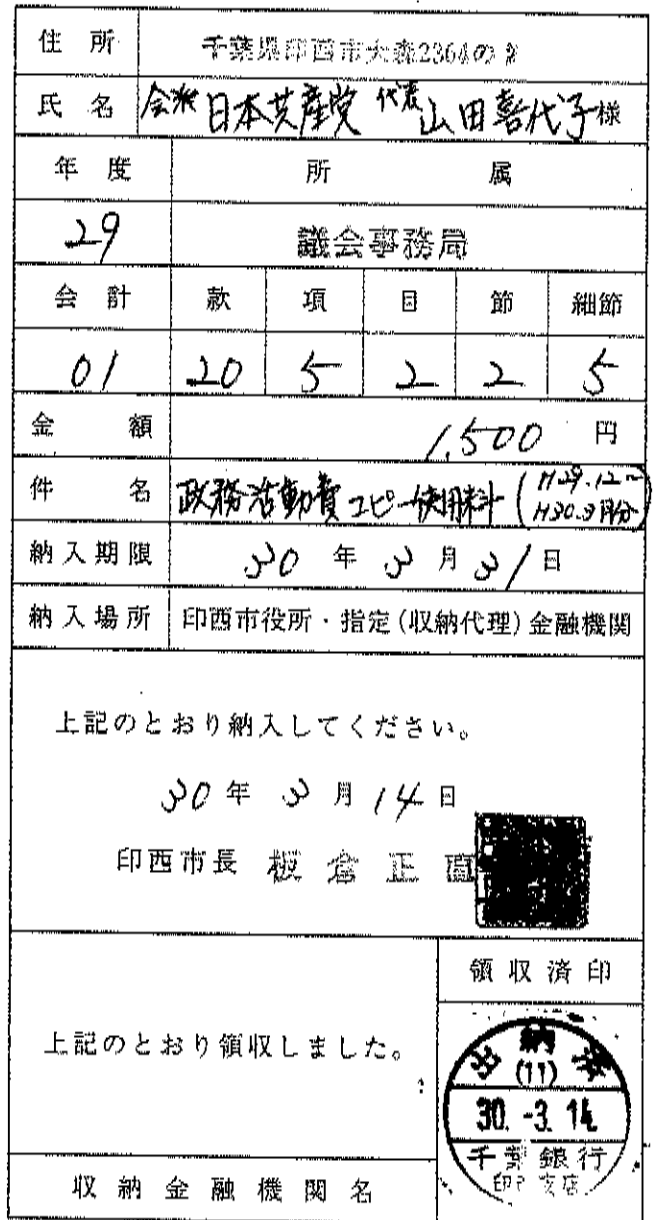 住所 千葉県印西市大森2364の2
氏名 会派 日本共産党 代表 山田喜代子様
年度 所属
29 議会事務局
会計 款 項 目 節 細節
01 20 5 2 2 5
金額 1,500 円
件名 政務活動費コピー使用料 (H29.12~
H30.3月分)
納入期限 30 年 3 月 31 日
納入場所 印西市役所・指定(収納代理)金融機関
上記のとおり納入してください。
30 年 3 月 14 日
印西市長 板倉正直
領収済印
上記のとおり領収しました。
出納済
(11)
30.-3.14
千葉銀行
支店
収納金融機関名